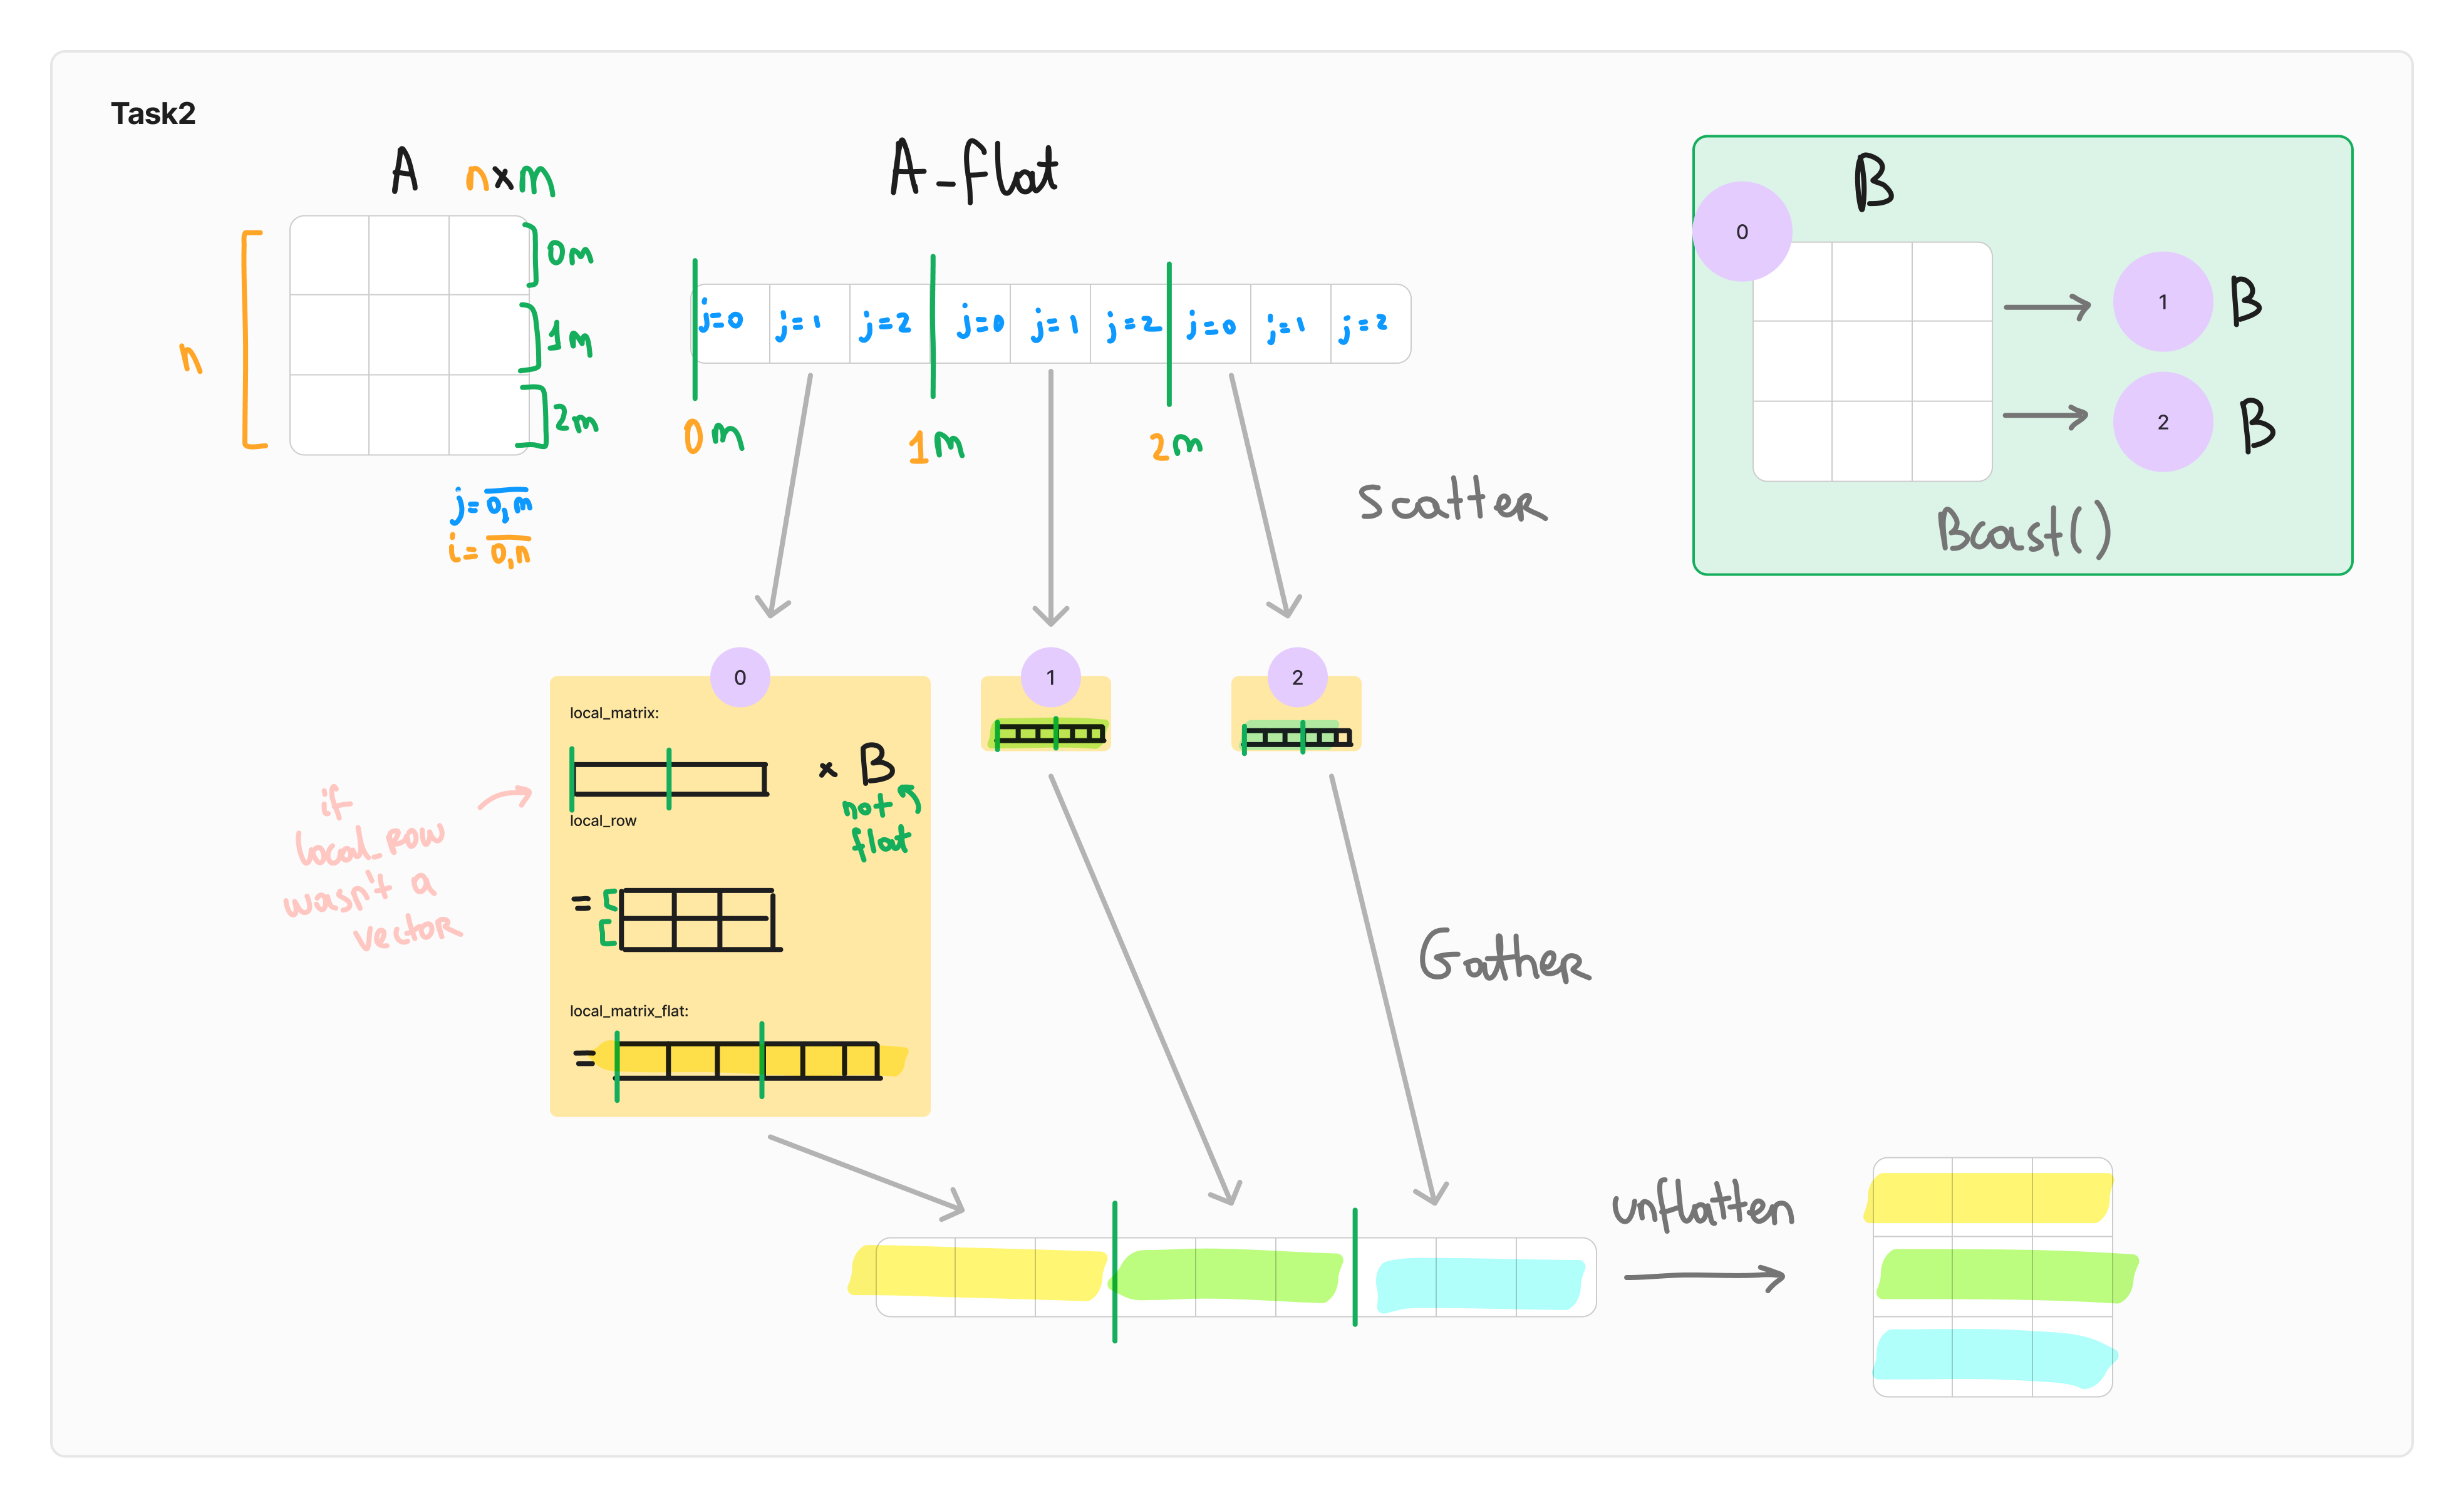 Task2
A n×m
n
0m
1m
2m
j=0,m
i=0,n
A_flat
j=0 j=1 j=2 j=0 j=1 j=2 j=0 j=1 j=2
0m 1m 2m
Scatter
B
0
1 B
2 B
Bcast()
0
local_matrix:
× B
not
flat
local_row
=
local_matrix_flat:
=
1
2
if
local_row
wasn't a
vector
Gather
unflatten